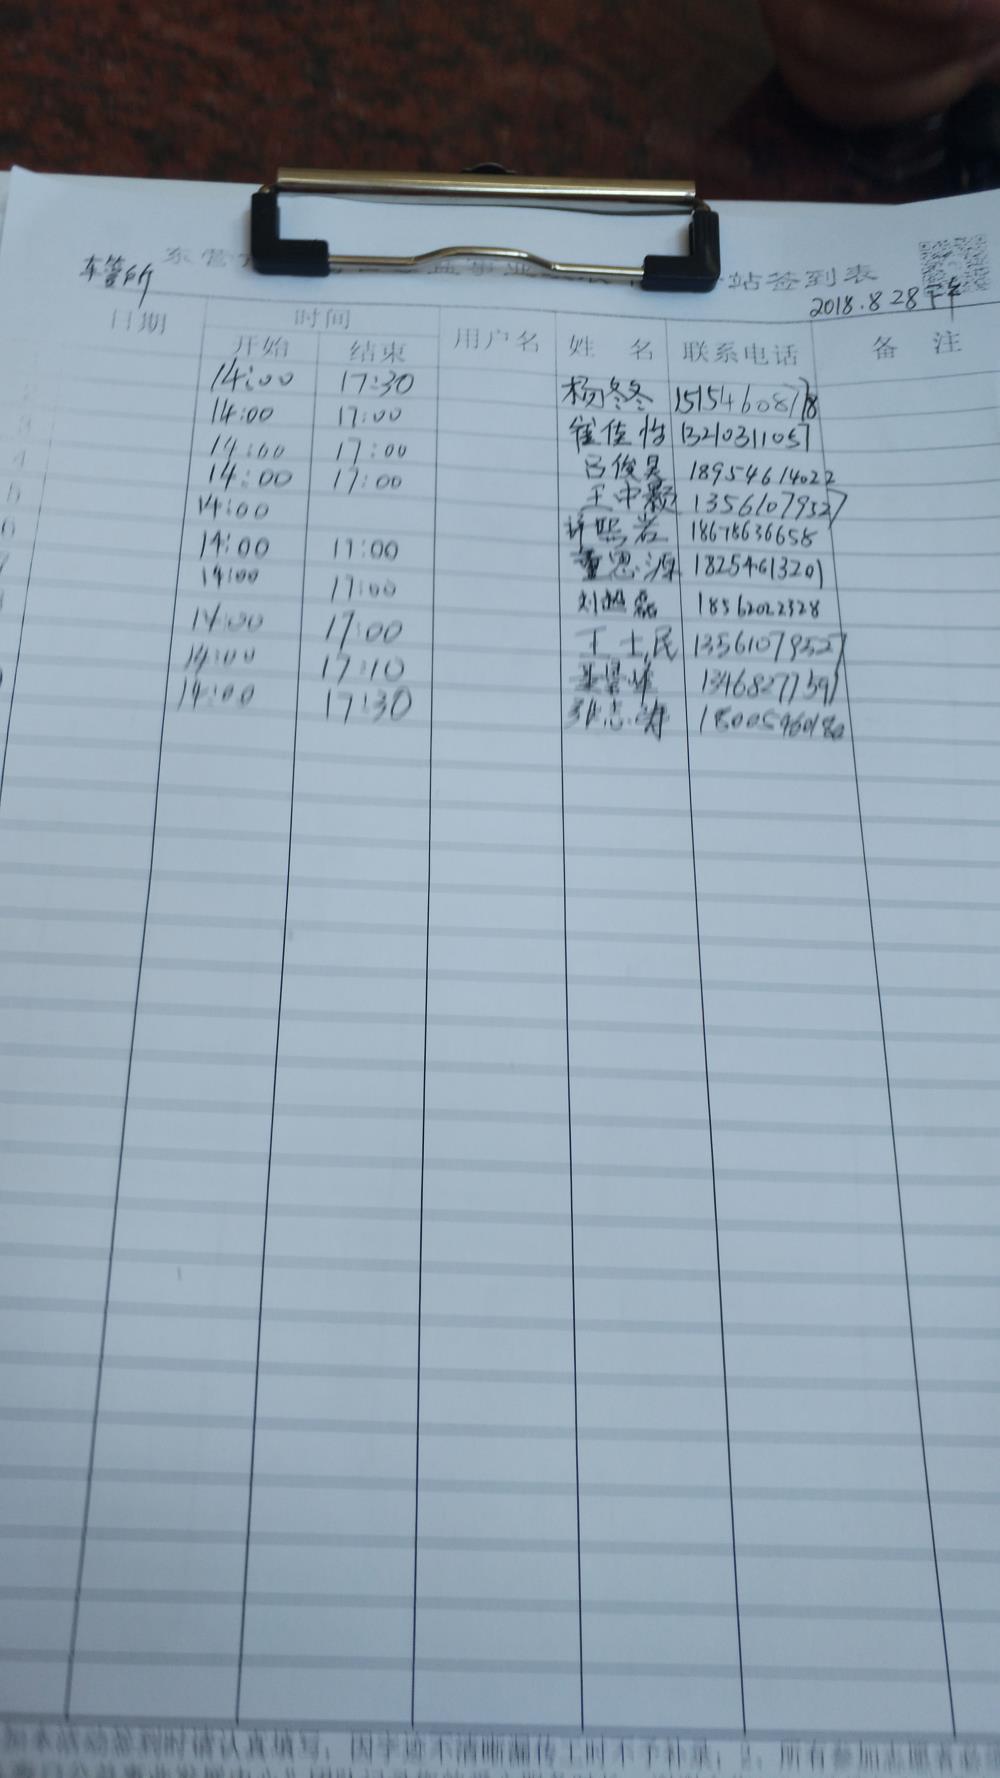 车管所 东营 站签到表
2018.8.28下午
日期 时间 用户名 姓 名 联系电话 备 注
开始 结束
14:00 17:30 杨冬冬
14:00 17:00 崔佳怡 13210311057
14:00 17:00 吕俊昊 18954614022
14:00 17:00 王中颢 13561079527
14:00 许熙岩 18678636658
14:00 17:00 董思源 18254613201
14:00 17:00 18562022328
14:00 17:00 王士民 13561079527
14:00 17:10 13468277591
14:00 17:30 张志涛
认真填写；因字迹不清晰漏传工时不予补录；2、所有参加志愿者